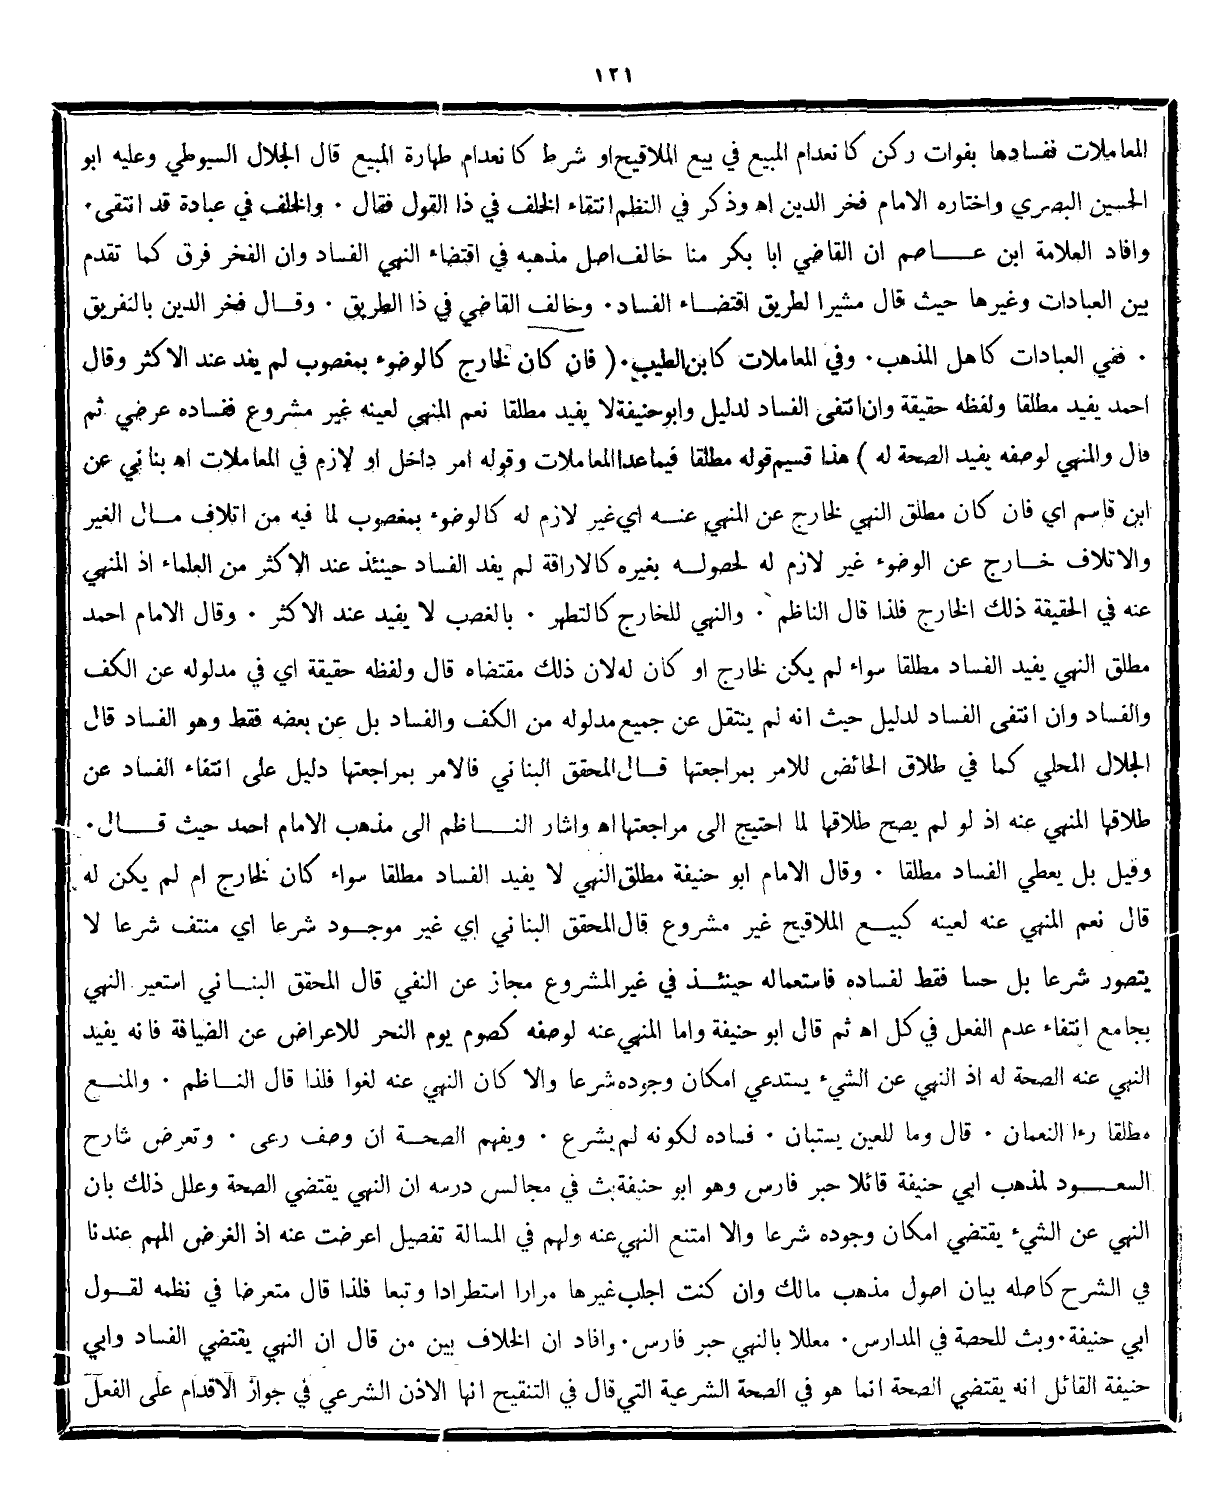 ١٢١
المعاملات ففسادها بفوات ركن كانعدام المبيع في بيع الملاقيح او شرط كانعدام طهارة المبيع قال الجلال السيوطي وعليه ابو
الحسين البصري واختاره الامام فخر الدين اه وذكر في النظم انتقاء الخلف في ذا القول فقال ٠ والخلف في عبادة قد انتقى ٠
وافاد العلامة ابن عاصم ان القاضي ابا بكر منا خالف اصل مذهبه في اقتضاء النهي الفساد وان الفخر فرق كما تقدم
بين العبادات وغيرها حيث قال مشيرا لطريق اقتضاء الفساد ٠ وخالف القاضي في ذا الطريق ٠ وقال فخر الدين بالتفريق
٠ ففي العبادات كاهل المذهب ٠ وفي المعاملات كابن الطيب ٠ ( فان كان لخارج كالوضوء بمغصوب لم يفد عند الاكثر وقال
احمد يفيد مطلقا ولفظه حقيقة وان انتفى الفساد لدليل وابو حنيفة لا يفيد مطلقا نعم المنهي لعينه غير مشروع ففساده عرضي ثم
قال والمنهي لوصفه يفيد الصحة له ) هذا قسيم قوله مطلقا فيما عدا المعاملات وقوله امر داخل او لازم في المعاملات اه بناني عن
ابن قاسم اي فان كان مطلق النهي لخارج عن المنهي عنه اي غير لازم له كالوضوء بمغصوب لما فيه من اتلاف مال الغير
والاتلاف خارج عن الوضوء غير لازم له لحصوله بغيره كالاراقة لم يفد الفساد حينئذ عند الاكثر من العلماء اذ المنهي
عنه في الحقيقة ذلك الخارج فلذا قال الناظم ٠ والنهي للخارج كالتطهر ٠ بالغصب لا يفيد عند الاكثر ٠ وقال الامام احمد
مطلق النهي يفيد الفساد مطلقا سواء لم يكن لخارج او كان له لان ذلك مقتضاه قال ولفظه حقيقة اي في مدلوله عن الكف
والفساد وان انتفى الفساد لدليل حيث انه لم ينتقل عن جميع مدلوله من الكف والفساد بل عن بعضه فقط وهو الفساد قال
الجلال المحلي كما في طلاق الحائض للامر بمراجعتها قال المحقق البناني فالامر بمراجعتها دليل على انتفاء الفساد عن
طلاقها المنهي عنه اذ لو لم يصح طلاقها لما احتيج الى مراجعتها اه واشار الناظم الى مذهب الامام احمد حيث قال ٠
وقيل بل يعطي الفساد مطلقا ٠ وقال الامام ابو حنيفة مطلق النهي لا يفيد الفساد مطلقا سواء كان لخارج ام لم يكن له
قال نعم المنهي عنه لعينه كبيع الملاقيح غير مشروع قال المحقق البناني اي غير موجود شرعا اي منتف شرعا لا
يتصور شرعا بل حسا فقط لفساده فاستعماله حينئذ في غير المشروع مجاز عن النفي قال المحقق البناني استعير النهي
بجامع انتفاء عدم الفعل في كل اه ثم قال ابو حنيفة واما المنهي عنه لوصفه كصوم يوم النحر للاعراض عن الضيافة فانه يفيد
النهي عنه الصحة له اذ النهي عن الشيء يستدعي امكان وجوده شرعا والا كان النهي عنه لغوا فلذا قال الناظم ٠ والمنع
مطلقا رءا النعمان ٠ قال وما للعين يستبان ٠ فساده لكونه لم يشرع ٠ ويفهم الصحة ان وصف رعى ٠ وتعرض شارح
السعود لمذهب ابي حنيفة قائلا حبر فارس وهو ابو حنيفة بث في مجالس درسه ان النهي يقتضي الصحة وعلل ذلك بان
النهي عن الشيء يقتضي امكان وجوده شرعا والا امتنع النهي عنه ولهم في المسالة تفصيل اعرضت عنه اذ الغرض المهم عندنا
في الشرح كاصله بيان اصول مذهب مالك وان كنت اجلب غيرها مرارا استطرادا وتبعا فلذا قال متعرضا في نظمه لقول
ابي حنيفة ٠ وبث للصحة في المدارس ٠ معللا بالنهي حبر فارس ٠ وافاد ان الخلاف بين من قال ان النهي يقتضي الفساد وابي
حنيفة القائل انه يقتضي الصحة انما هو في الصحة الشرعية التي قال في التنقيح انها الاذن الشرعي في جواز الاقدام على الفعل